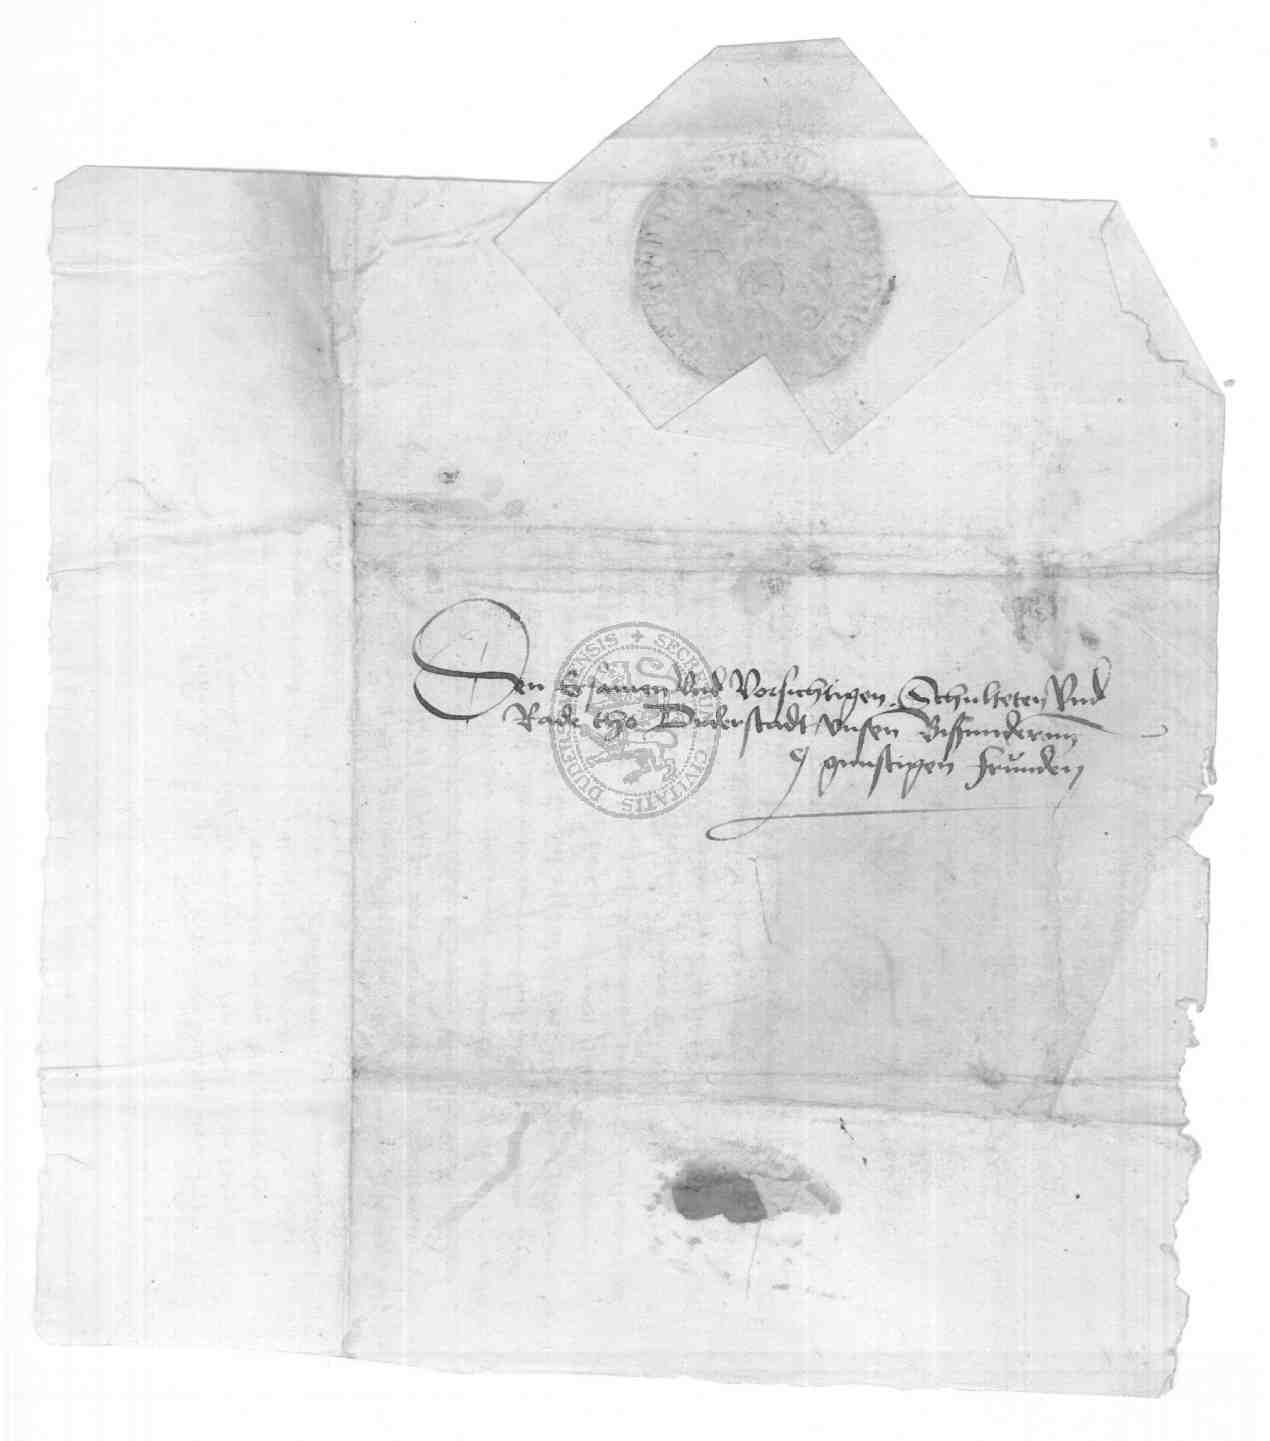 Den Ersamen Vnd Vorsichtigen, Schulteten Vnd
Rade tho Duderstadt, vnsen Bisundernn
gunstigen frunden
SECRETUM CIVITATIS DUDERSTADENSIS